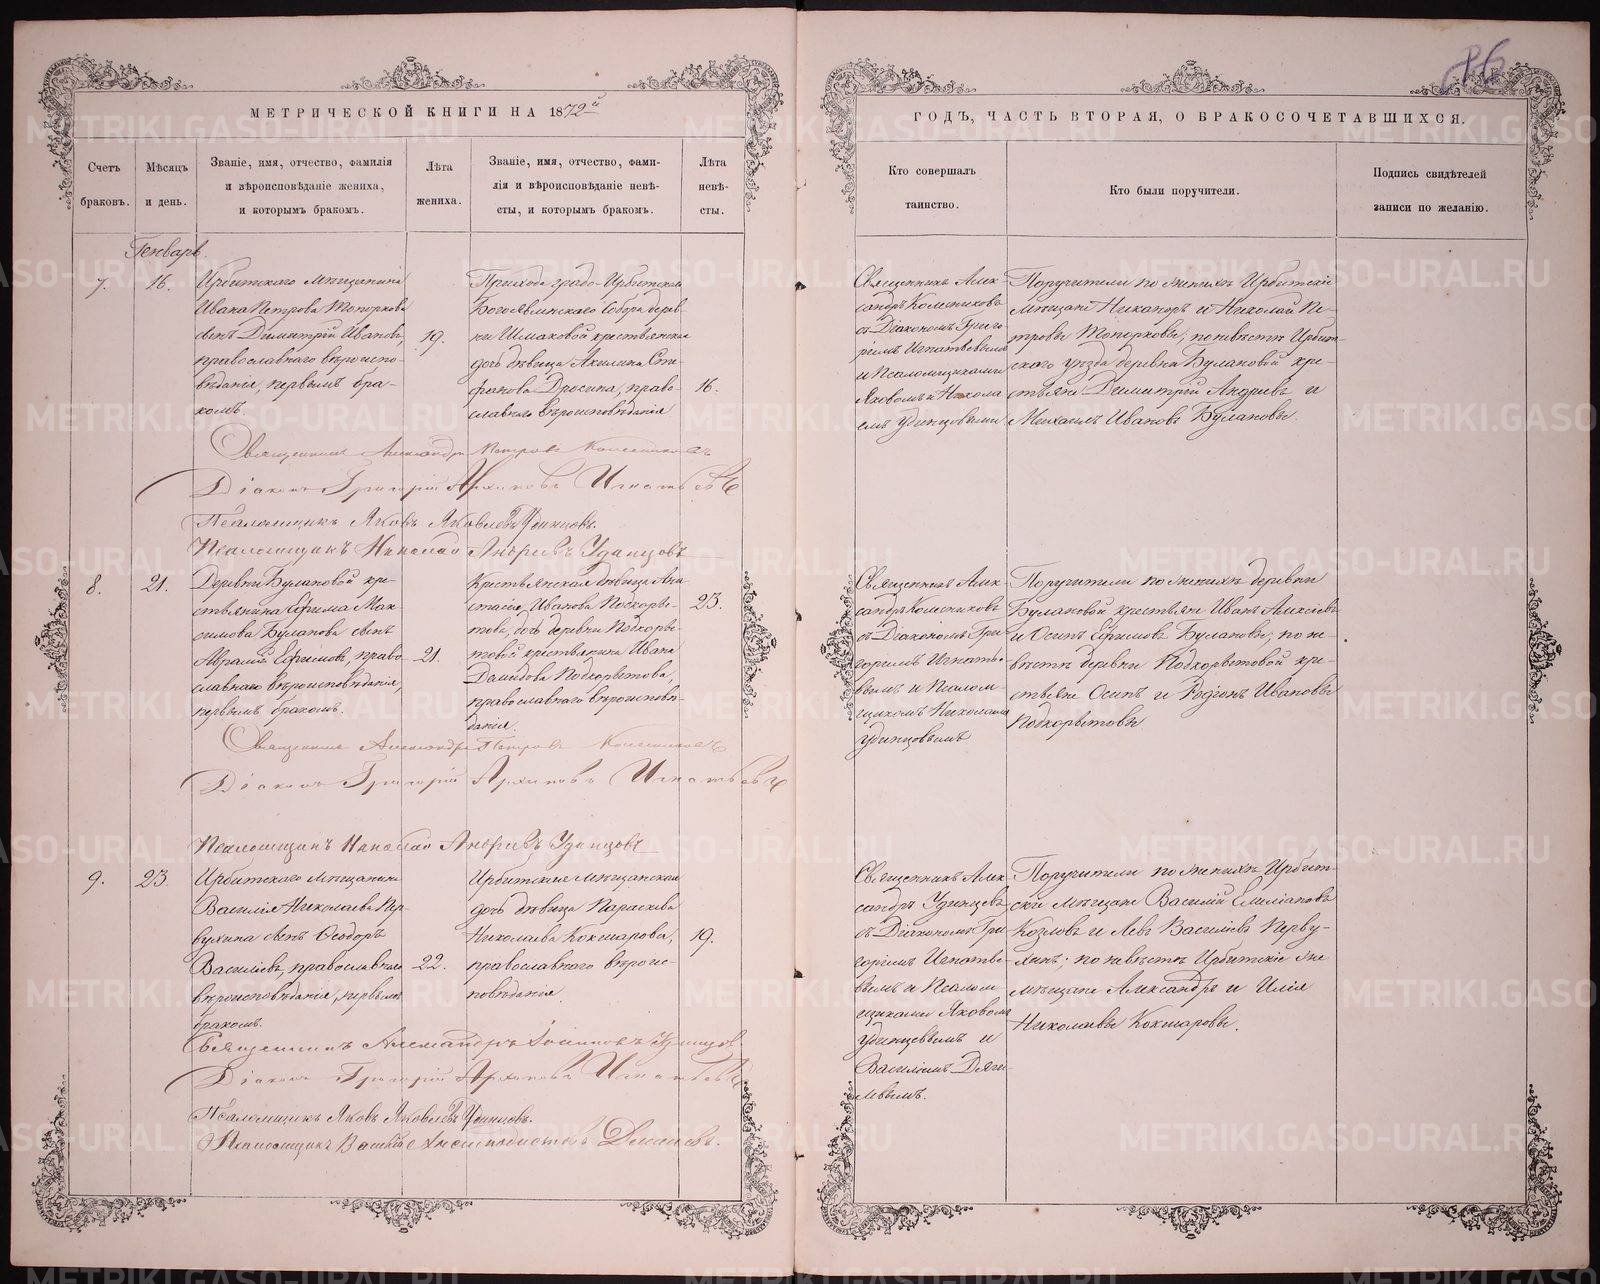 МЕТРИЧЕСКОЙ КНИГИ НА 1872й
Счетъ браковъ.
Мѣсяцъ и день.
Званіе, имя, отчество, фамилія
и вѣроисповѣданіе жениха,
и которымъ бракомъ.
Лѣта жениха.
Званіе, имя, отчество, фами-
лія и вѣроисповѣданіе невѣ-
сты, и которымъ бракомъ.
Лѣта невѣ-
сты.
Генварь.
7.
16.
Ирбитскаго мѣщанина
Ивана Петрова Топоркова
сынъ Димитрій Ивановъ,
православнаго вѣроиспо-
вѣданія, первымъ бра-
комъ.
19.
Прихода градо-Ирбитскаго
Богоявленскаго Собора дерев-
ни Шмаковой крестьянская
дочь дѣвица Акилина Сте-
фанова Дросина, право-
славнаго вѣроисповѣданія
16.
Священникъ Александръ Петровъ Колесниковъ
Діаконъ Григорій Архиповъ Игнатьевъ
Псаломщикъ Яковъ Яковлевъ Удинцовъ.
Псаломщикъ Николай Андреевъ Удинцовъ
8.
21.
Деревни Булановой кре-
стьянина Ефима Мак-
симова Буланова сынъ
Аврамій Ефимовъ, право-
славнаго вѣроисповѣданія,
первымъ бракомъ.
21.
Крестьянская дѣвица Ана-
стасія Иванова Подкоры-
това, дочь деревни Подкоры-
товой крестьянина Ивана
Давидова Подкорытова,
православнаго вѣроисповѣ-
данія.
23.
Священникъ Александръ Петровъ Колесниковъ
Діаконъ Григорій Архиповъ Игнатьевъ
Псаломщикъ Николай Андреевъ Удинцовъ
9.
23.
Ирбитскаго мѣщанина
Василія Николаева Пер-
вухина сынъ Ѳеодоръ
Васильевъ, православнаго
вѣроисповѣданія, первымъ
бракомъ.
22.
Ирбитская мѣщанская
дочь дѣвица Параскева
Николаева Кокшарова,
православнаго вѣроис-
повѣданія.
19.
Священникъ Александръ Удинцовъ
Діаконъ Григорій Архиповъ Игнатьевъ
Псаломщикъ Яковъ Яковлевъ Удинцовъ.
Псаломщикъ Василій
ГОДЪ, ЧАСТЬ ВТОРАЯ, О БРАКОСОЧЕТАВШИХСЯ.
Кто совершалъ
таинство.
Кто были поручители.
Подпись свидѣтелей
записи по желанію.
Священникъ Алек-
сандръ Колесниковъ
съ Діакономъ Григо-
ріемъ Игнатьевымъ
и Псаломщиками
Яковомъ и Никола-
емъ Удинцовыми
Поручители по женихѣ Ирбитскіе
мѣщане Никаноръ и Николай Пе-
тровы Топорковы; по невѣстѣ Ирбит-
скаго уѣзда деревни Булановой кре-
стьяне Димитрій Андреевъ и
Михаилъ Ивановъ Булановы.
Священникъ Алек-
сандръ Колесниковъ
съ Діакономъ Гри-
горіемъ Игнатье-
вымъ и Псалом-
щикомъ Николаемъ
Удинцовымъ
Поручители по женихѣ деревни
Булановой крестьяне Иванъ Алексѣевъ
и Осипъ Ефимовъ Булановы; по не-
вѣстѣ деревни Подкорытовой кре-
стьяне Осипъ и Родіонъ Ивановы
Подкорытовы
Священникъ Алек-
сандръ Удинцевъ
съ Діакономъ Гри-
горіемъ Игнатье-
вымъ и Псалом-
щиками Яковомъ
Удинцевымъ и
Василіемъ Дяги-
левымъ.
Поручители по женихѣ Ирбит-
скіе мѣщане Василій Емиліановъ
Козловъ и Левъ Васильевъ Перву-
хинъ; по невѣстѣ Ирбитскіе же
мѣщане Александръ и Илія
Николаевы Кокшаровы.
METRIKI.GASO-URAL.RU